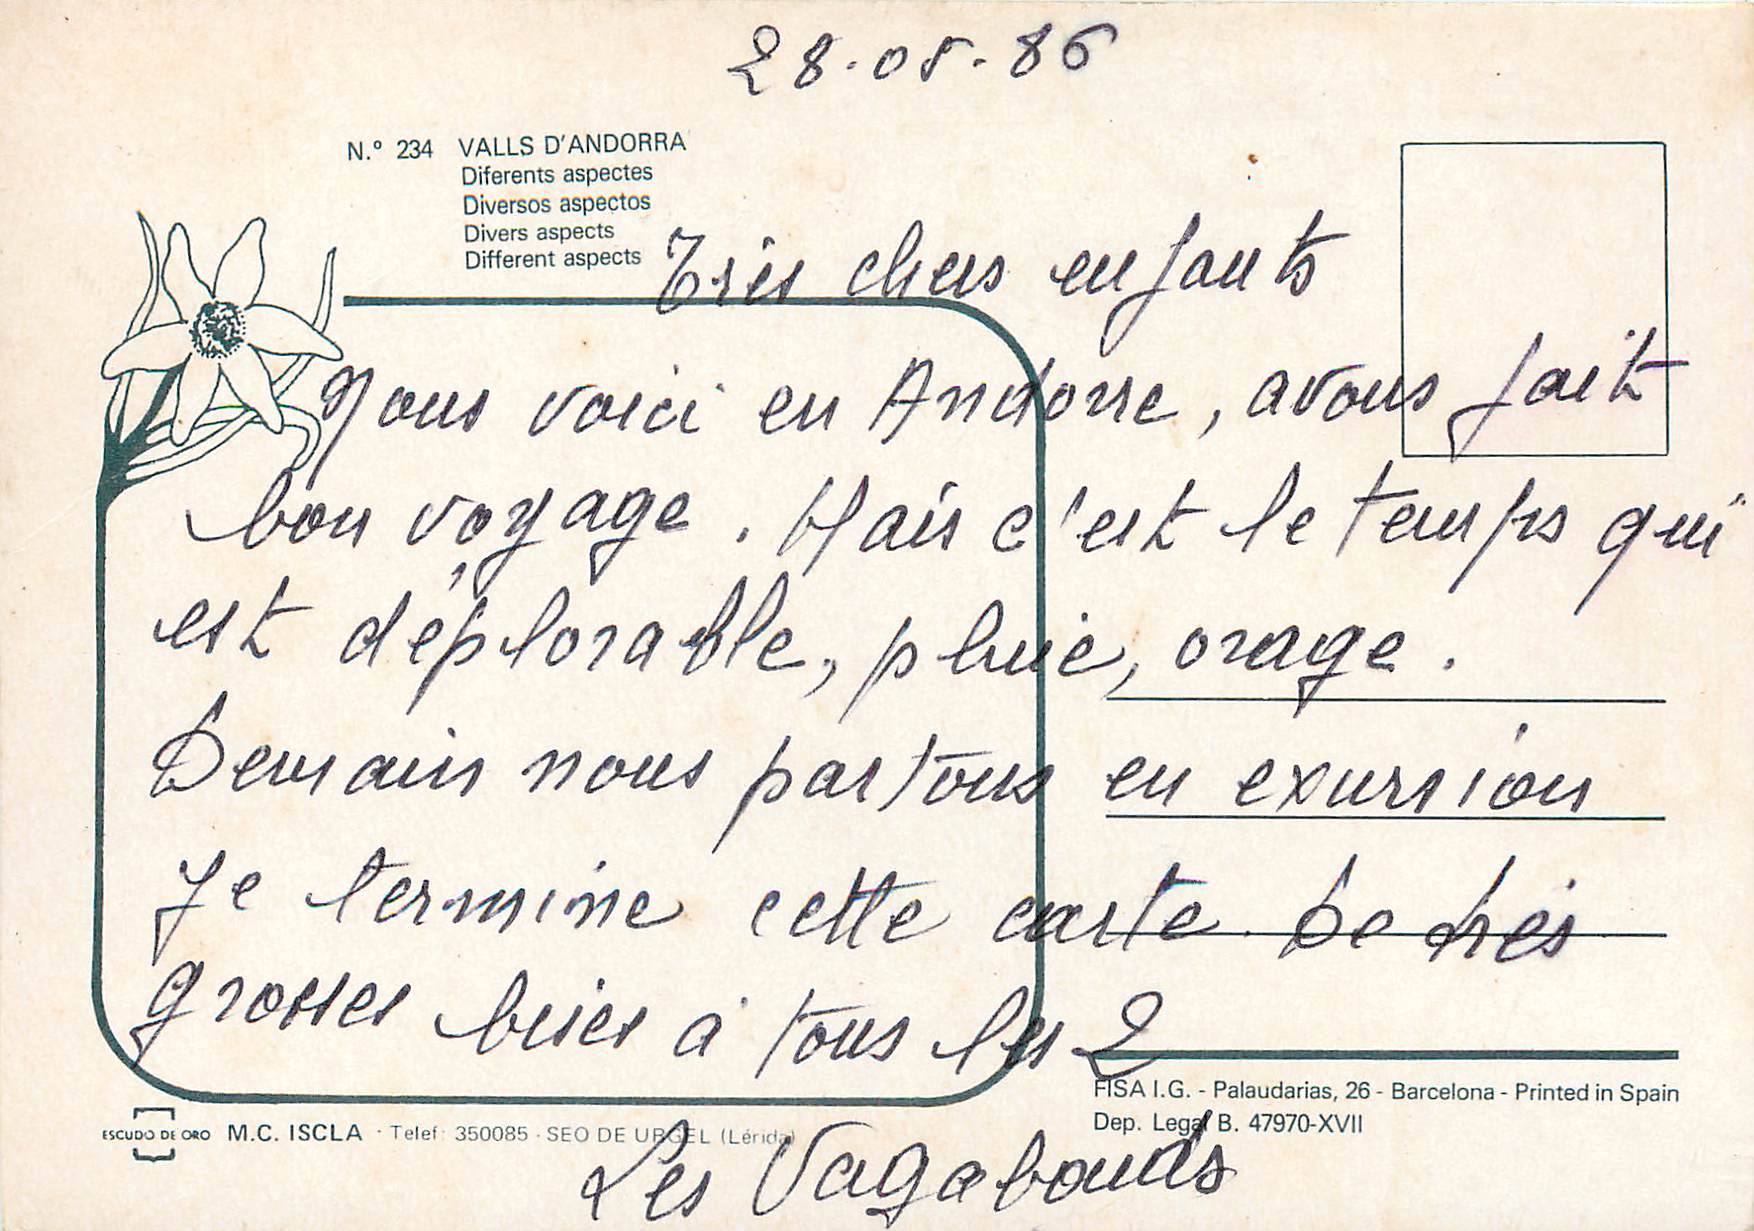 28.05.86
N.º 234 VALLS D'ANDORRA
Diferents aspectes
Diversos aspectos
Divers aspects
Different aspects
Très chers enfants
Nous voici en Andorre, avons fait
bon voyage. Mais c'est le temps qui
est déplorable, pluie, orage.
Demain nous partons en exursion
Je termine cette carte. De très
grosses bises à tous les 2
FISA I.G. - Palaudarias, 26 - Barcelona - Printed in Spain
Dep. Legal B. 47970-XVII
ESCUDO DE ORO M.C. ISCLA · Telef: 350085 · SEO DE URGEL (Lérida)
Les Vagabonds